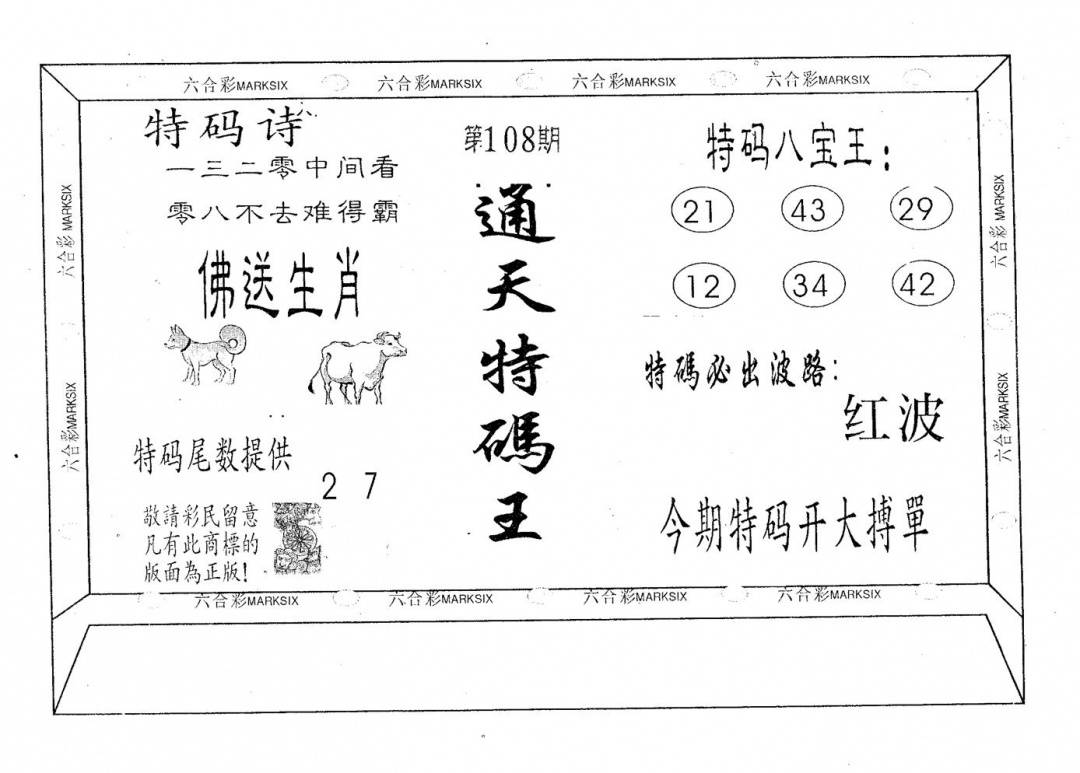 六合彩MARKSIX 六合彩MARKSIX 六合彩MARKSIX 六合彩MARKSIX
六合彩MARKSIX
六合彩MARKSIX
特码诗
一三二零中间看
零八不去难得霸
佛送生肖
特码尾数提供
2 7
敬請彩民留意
凡有此商標的
版面為正版!
第108期
通
天
特
碼
王
特码八宝王:
21 43 29
12 34 42
特碼必出波路:
红波
今期特码开大搏單
六合彩 MARKSIX
六合彩MARKSIX
六合彩MARKSIX 六合彩MARKSIX 六合彩MARKSIX 六合彩MARKSIX